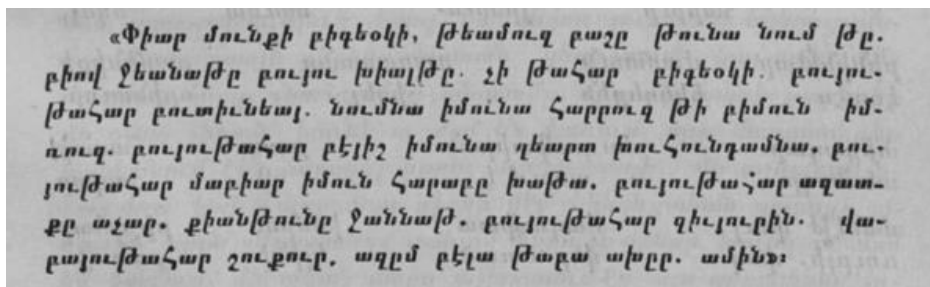 «Փիար մունքի բիզեօկի, թեամուզ բաշը թունա նում թը.
բիով ջեանաթը բույու խիալթը. չի թահար բիզեօկի. բույու-
թահար բուտիւնեալ. նումնա իմունա հարրուզ թի բիմուն իմ-
ռուզ. բույութահար բէլիշ իմունա ղեարտ խուհունդամնա. բու-
յութահար մաբիար իմուն հարարը խաթա. բույութահար ազատ-
քը աչար. քիանթունը ջաննաթ. բույութահար զիւլուրին. վա-
բայութահար շուքուր. ազըմ բէլա թաբա ախըր. ամին»։